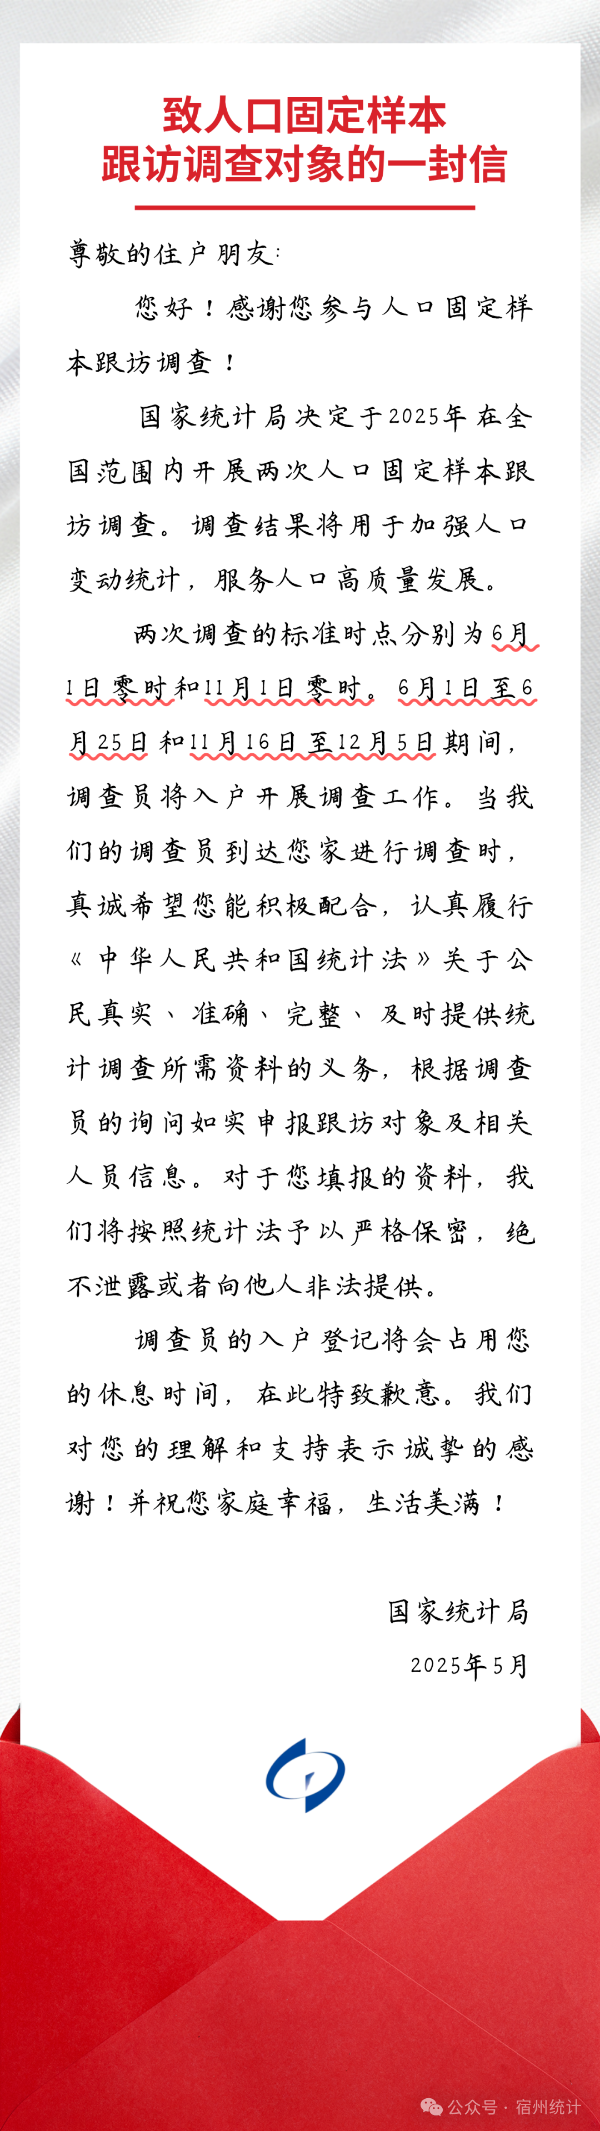 致人口固定样本
跟访调查对象的一封信
尊敬的住户朋友:
您好！感谢您参与人口固定样
本跟访调查！
国家统计局决定于2025年在全
国范围内开展两次人口固定样本跟
访调查。调查结果将用于加强人口
变动统计，服务人口高质量发展。
两次调查的标准时点分别为6月
1日零时和11月1日零时。6月1日至6
月25日和11月16日至12月5日期间，
调查员将入户开展调查工作。当我
们的调查员到达您家进行调查时，
真诚希望您能积极配合，认真履行
《中华人民共和国统计法》关于公
民真实、准确、完整、及时提供统
计调查所需资料的义务，根据调查
员的询问如实申报跟访对象及相关
人员信息。对于您填报的资料，我
们将按照统计法予以严格保密，绝
不泄露或者向他人非法提供。
调查员的入户登记将会占用您
的休息时间，在此特致歉意。我们
对您的理解和支持表示诚挚的感
谢！并祝您家庭幸福，生活美满！
国家统计局
2025年5月
公众号·宿州统计